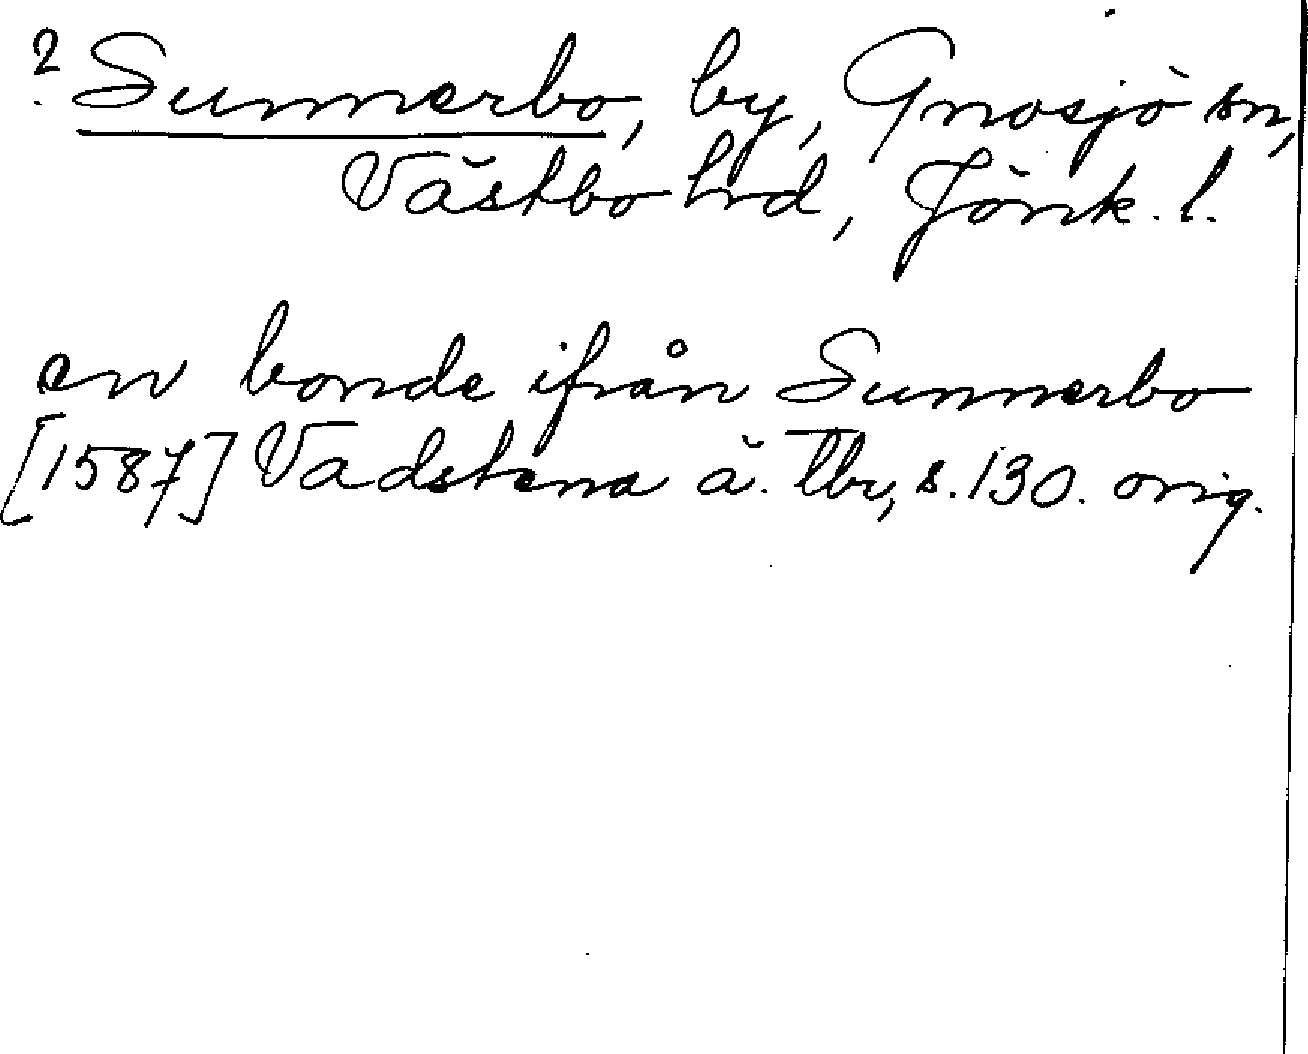 ? Sunnerbo, by, Gnosjö sn,
Västbo hrd, Jönk. l.
en bonde ifrån Sunnerbo
[1587] Vadstena ä. tbr, s. 130. orig.